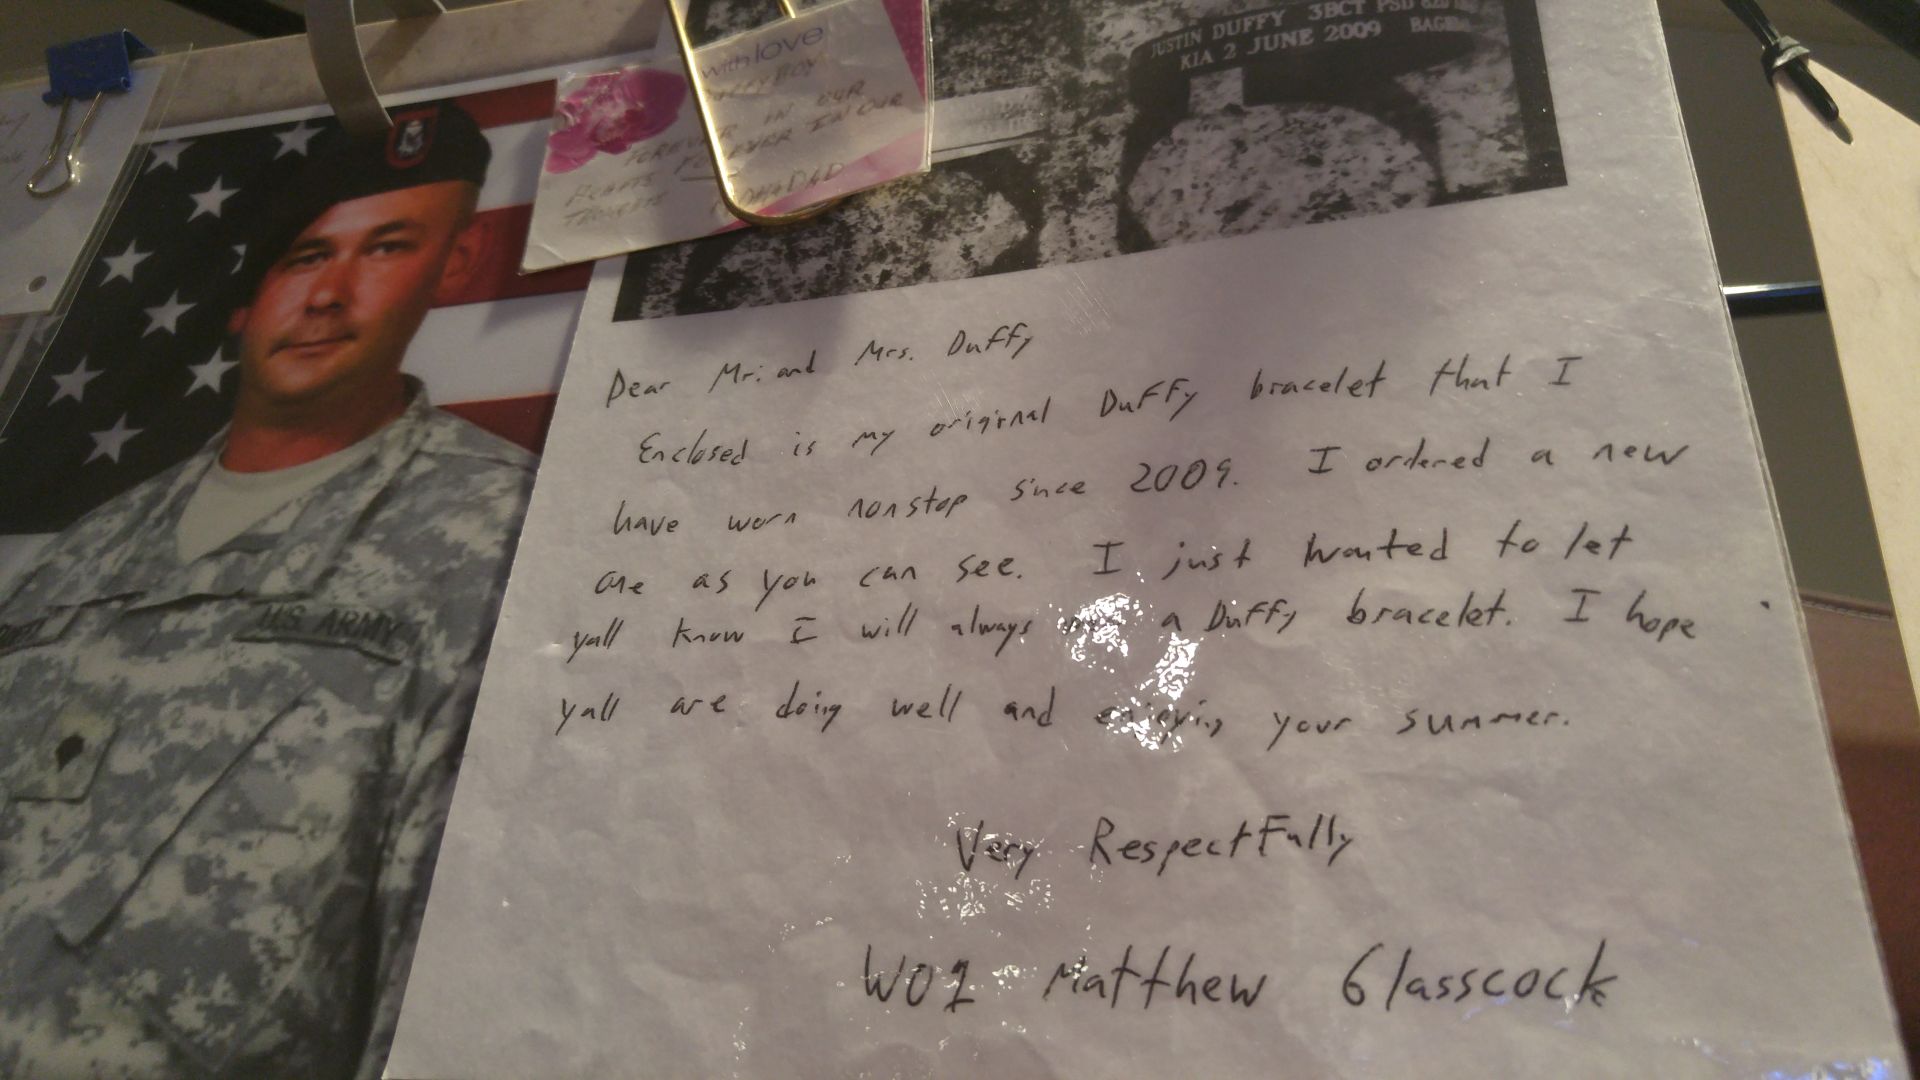 JUSTIN DUFFY 3BCT PSD
KIA 2 JUNE 2009
with love
IN OUR
FOREVER IN OUR
THOUGHTS
MOM & DAD
U.S. ARMY
Dear Mr. and Mrs. Duffy
Enclosed is my original Duffy bracelet that I
have worn nonstop since 2009. I ordered a new
one as you can see. I just wanted to let
yall know I will always a Duffy bracelet. I hope
yall are doing well and enjoying your summer.
Very Respectfully
WO1 Matthew Glasscock